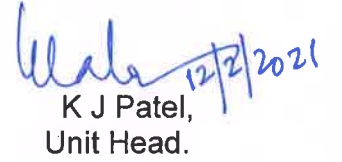 12/2/2021
K J Patel,
Unit Head.